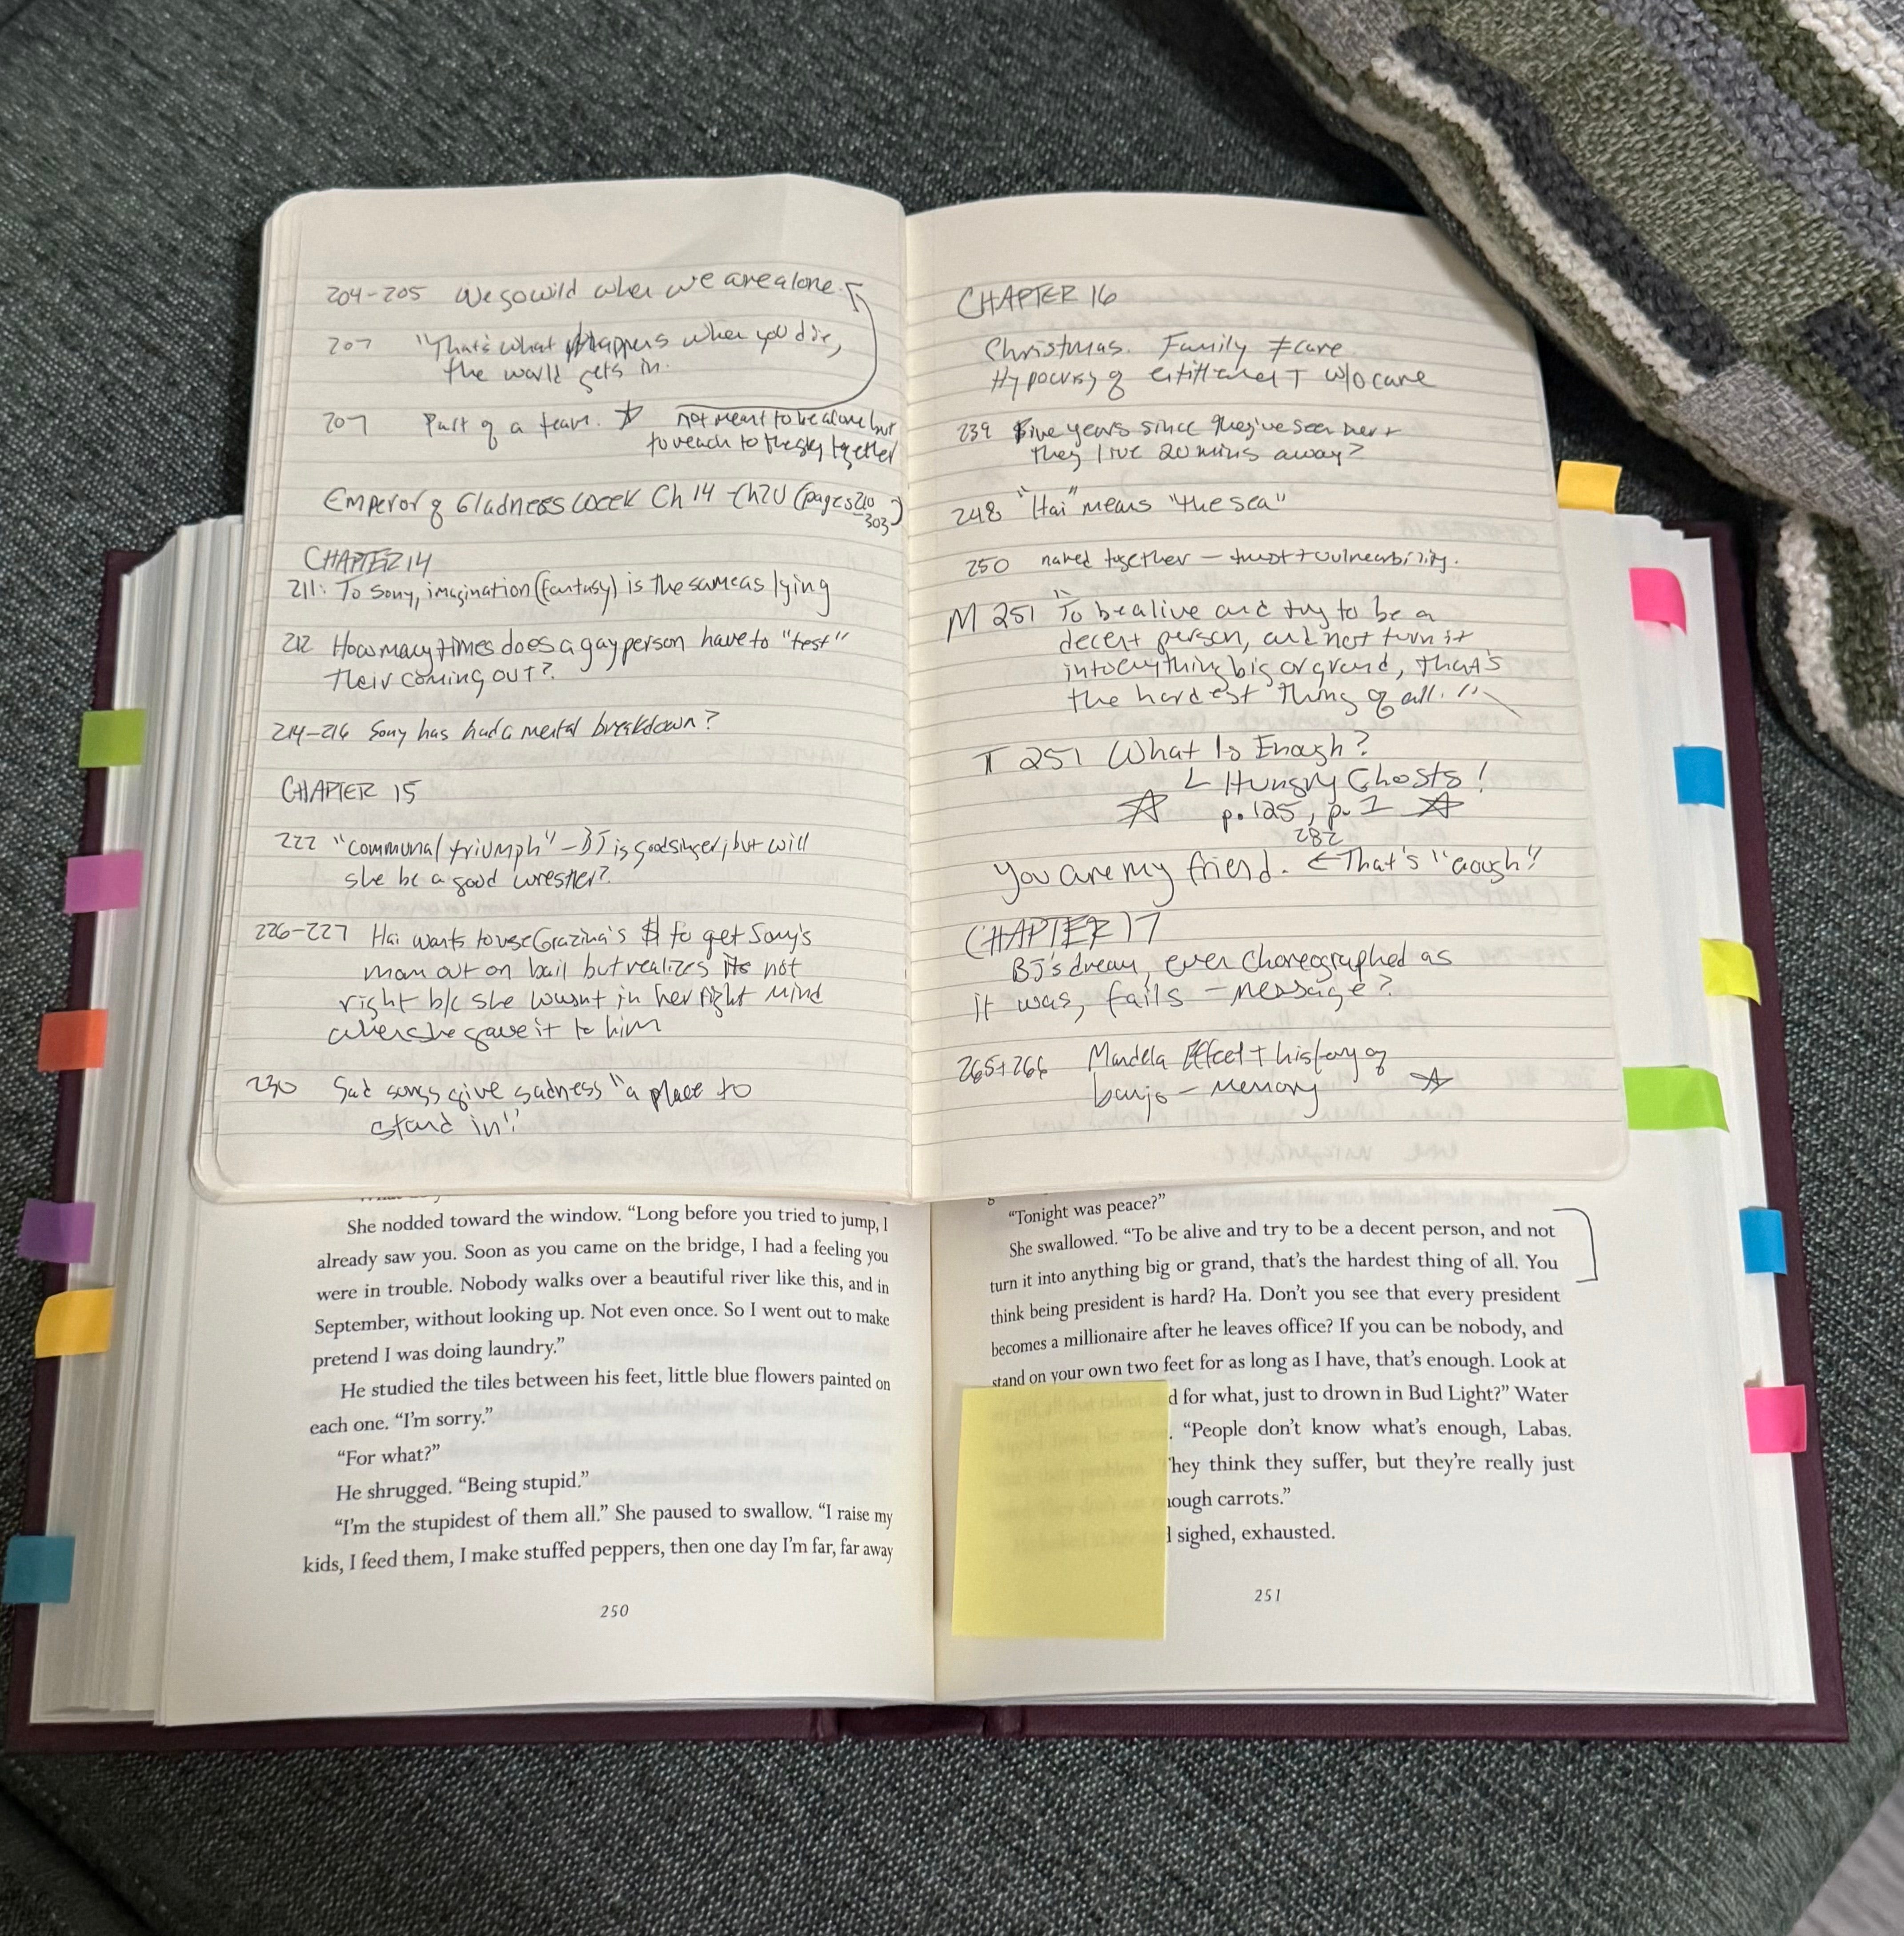 204-205 We go wild when we are alone.
207 "That's what happens when you die,
the world gets in.
207 Part of a team. not meant to be alone but
to reach to the sky together
Emperor of Gladness Week Ch 14 - Ch 20 (pages 210
-303)
CHAPTER 14
211: To Sony, imagination (fantasy) is the same as lying
212 How many times does a gay person have to "test"
their coming out?
214-216 Sony has had a mental breakdown?
CHAPTER 15
222 "communal triumph" - BJ is good singer, but will
she be a good wrestler?
226-227 Hai wants to use Grazina's $ to get Sony's
mom out on bail but realizes its not
right b/c she wasnt in her right mind
when she gave it to him
230 Sad songs give sadness "a place to
stand in."
CHAPTER 16
Christmas. Family ≠ care
Hypocrisy of entitlement w/o care
239 Five years since they've seen her +
they live 20 mins away?
248 "Hai" means "the sea"
250 naked together — trust + vulnerability.
M 251 "To be alive and try to be a
decent person, and not turn it
into anything big or grand, that's
the hardest thing of all."
T 251 What Is Enough?
Hungry Ghosts!
p. 125, p. 1
282
You are my friend. ← That's "enough"
CHAPTER 17
BJ's dream, even choreographed as
it was, fails - message?
265+266 Mandela Effect + history of
banjo - memory
She nodded toward the window. “Long before you tried to jump, I
already saw you. Soon as you came on the bridge, I had a feeling you
were in trouble. Nobody walks over a beautiful river like this, and in
September, without looking up. Not even once. So I went out to make
pretend I was doing laundry.”
He studied the tiles between his feet, little blue flowers painted on
each one. “I’m sorry.”
“For what?”
He shrugged. “Being stupid.”
“I’m the stupidest of them all.” She paused to swallow. “I raise my
kids, I feed them, I make stuffed peppers, then one day I’m far, far away
250
“Tonight was peace?”
She swallowed. “To be alive and try to be a decent person, and not
turn it into anything big or grand, that’s the hardest thing of all. You
think being president is hard? Ha. Don’t you see that every president
becomes a millionaire after he leaves office? If you can be nobody, and
stand on your own two feet for as long as I have, that’s enough. Look at
for what, just to drown in Bud Light?” Water
“People don’t know what’s enough, Labas.
They think they suffer, but they’re really just
carrots.”
sighed, exhausted.
251